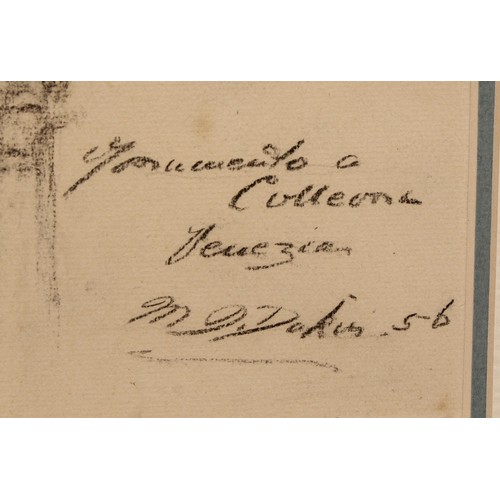 Monumento a
Colleoni
Venezia
M D Dakin 56